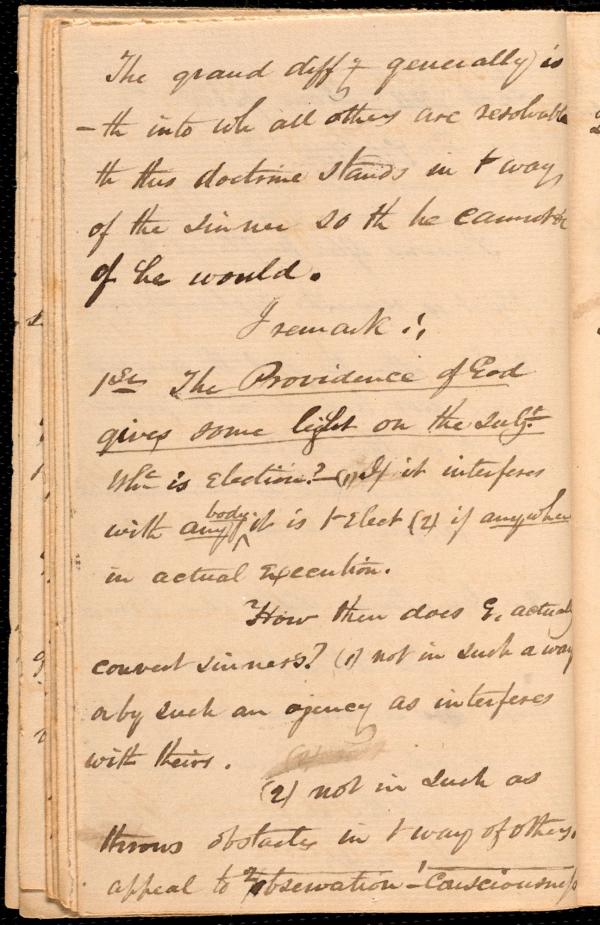 The grand diffy generally is
- th into wh all others are resolvable
th this doctrine stands in t way
of the sinner so th he cannot
if he would.
I remark :,
1st The Providence of God
gives some light on the subjt.
Wht is Election? - (1) If it interferes
with any body it is t Elect (2) if anywhere
in actual Execution.
How then does G. actually
convert sinners? (1) not in such a way
or by such an agency as interferes
with theirs.
(2) not in such as
throws obstacles in t way of others,
appeal to observation - Consciousness